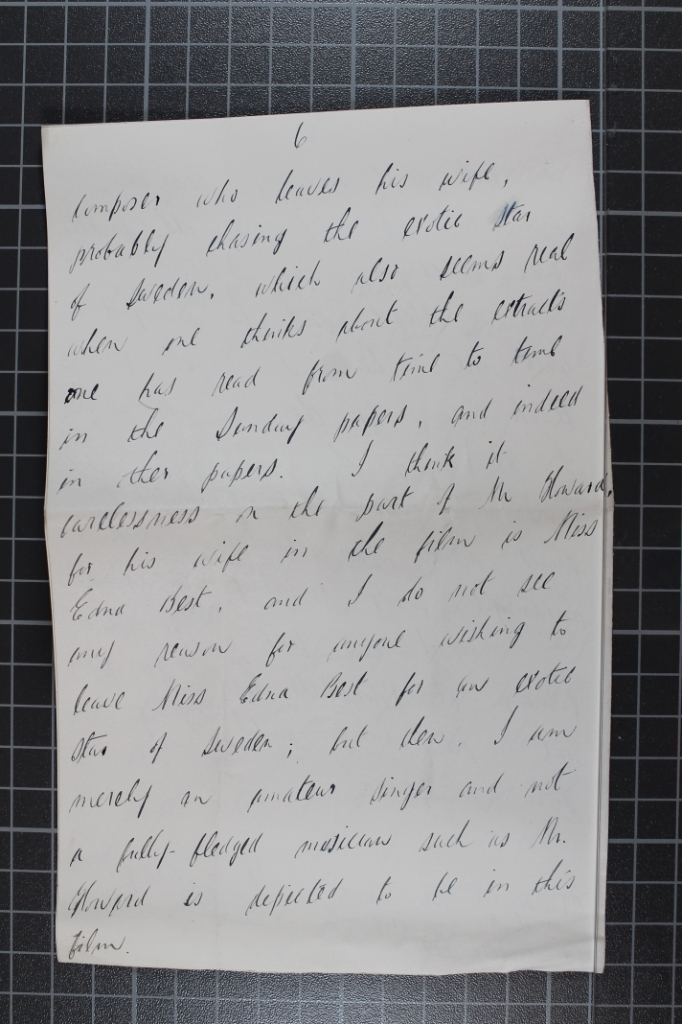 6
composer who leaves his wife,
probably chasing the exotic star
of Sweden, which also seems real
when one thinks about the extracts
one has read from time to time
in the Sunday papers, and indeed
in other papers. I think it
carelessness on the part of Mr Howard,
for his wife in the film is Miss
Edna Best, and I do not see
any reason for anyone wishing to
leave Miss Edna Best for an exotic
star of Sweden; but then, I am
merely an amateur singer and not
a fully-fledged musician such as Mr.
Howard is depicted to be in this
film.